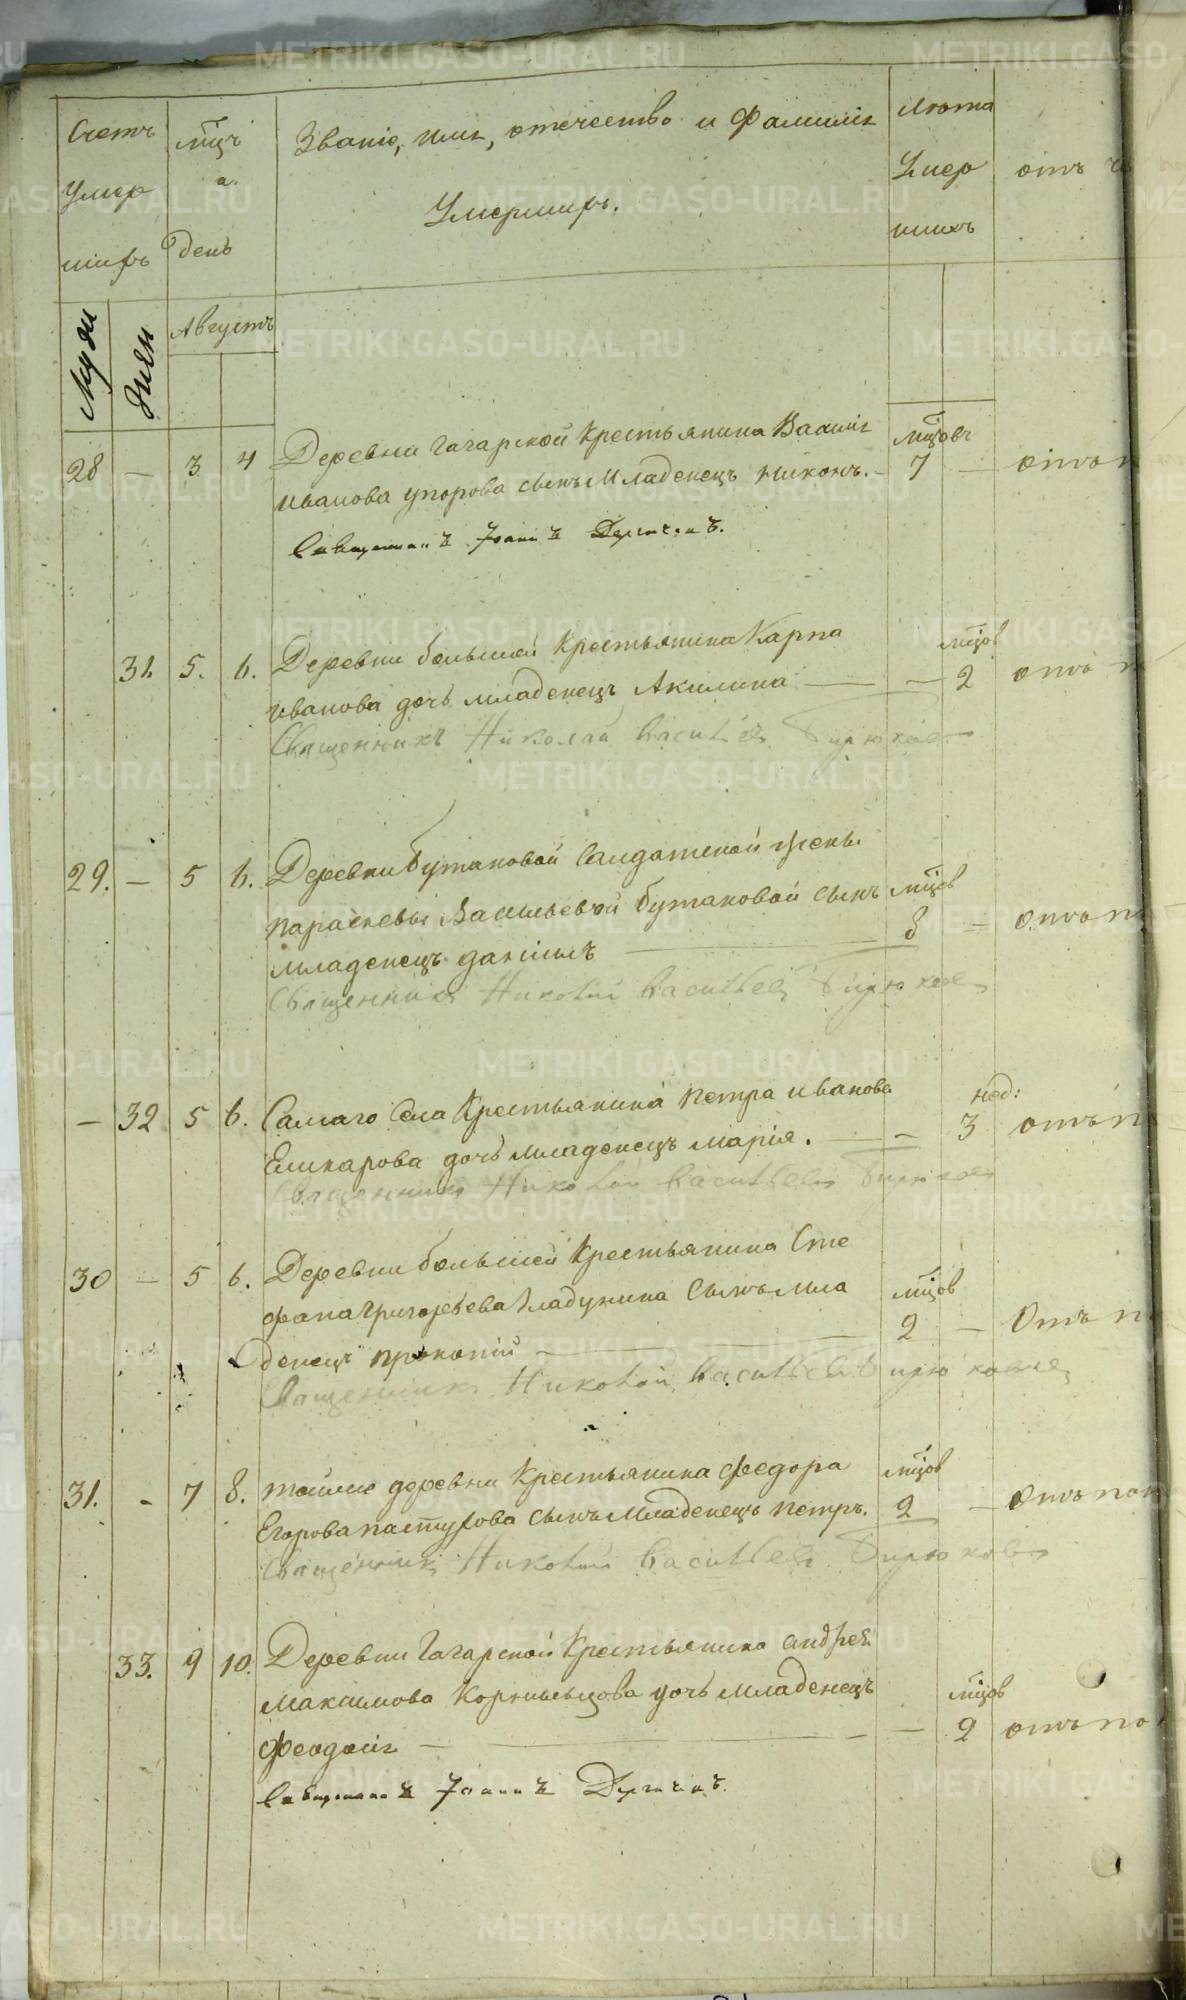 Счетъ умершихъ
Мцъ и день
Званіе, имя, отечество и фамилія
Умершихъ.
Лѣта умершихъ
отъ ч
Муж
жен
Августъ
Деревни Гагарской Крестьянина Василія
мцовъ
28 — 3 4 Иванова упорова сынъ младенецъ никонъ. — 7 — отъ
Священникъ Іоаннъ
мцов
31. 5. 6. Деревни большей Крестьянина Карпа
иванова дочь младенецъ Акилина — — 2 отъ
Священникъ Николай Васильевъ Бирюковъ
29. — 5 6. Деревни бутаковой Салдатской жены
параскевы Васильевой бутаковой сынъ мцов
младенецъ даніилъ — 8 — отъ по
Священникъ Николай Васильевъ Бирюковъ
нед:
— 32 5 6. Самаго Села Крестьянина петра иванова
дочь младенецъ марія. — — 3 отъ п
Священникъ Николай Васильевъ Бирюковъ
30 — 5 6. Деревни большей Крестьянина Сте
фана григорьева Гладунина Сынъ мла мцов
денецъ прокопій — 2 — Отъ п
Священникъ Николай Васильевъ Бирюковъ
31. - 7 8. тойже деревни Крестьянина федора мцов
Егорова пастухова сынъ младенецъ петръ. 2 — Отъ пон
Священникъ Николай Васильевъ Бирюковъ
33. 9 10. Деревни Гагарской Крестьянина андрея
максимова Корнильцова дочь младенецъ мцов
феодосія — — 2 отъ по
Священникъ Іоаннъ
METRIKI.GASO-URAL.RU